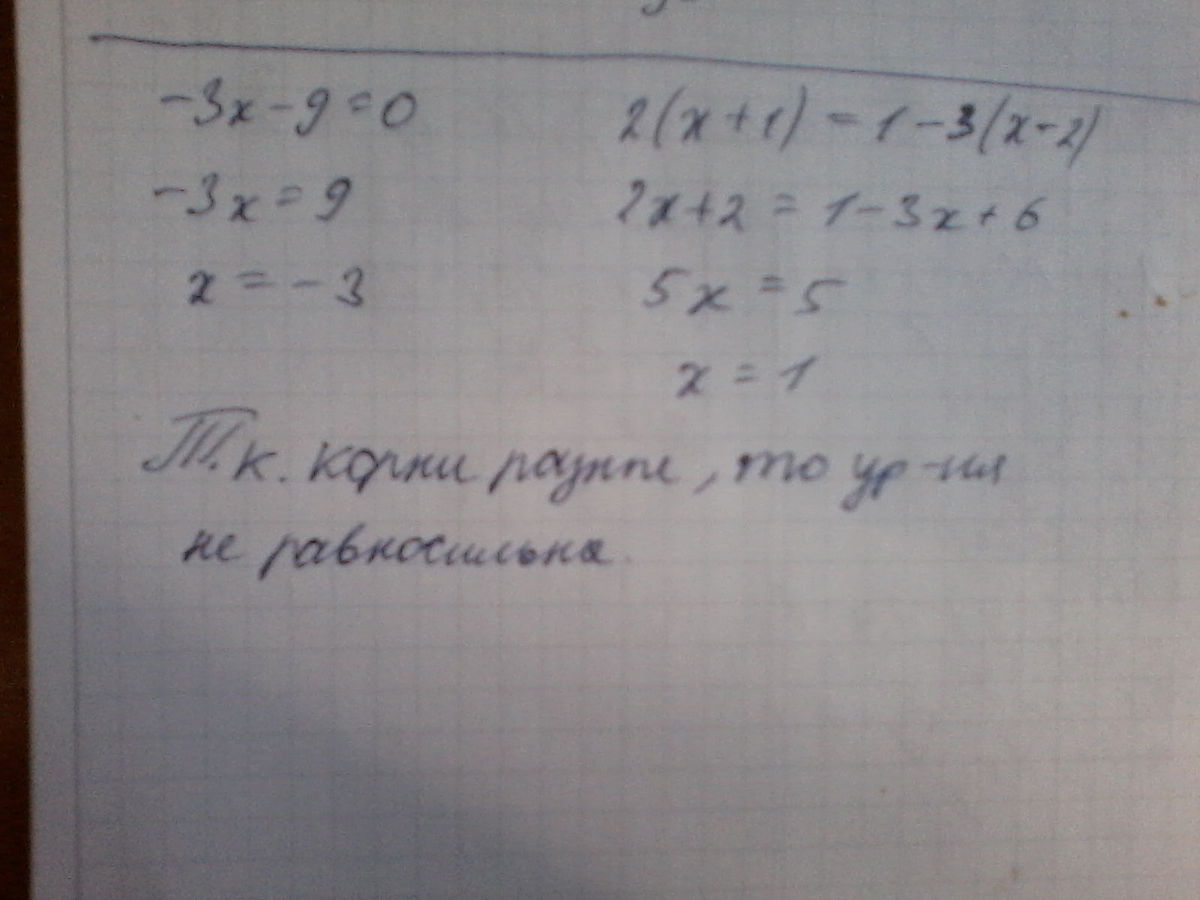 -3x-9=0
-3x=9
x=-3
2(x+1)=1-3(x-2)
2x+2=1-3x+6
5x=5
x=1
Т.к. корни разные, то ур-ия
не равносильна.